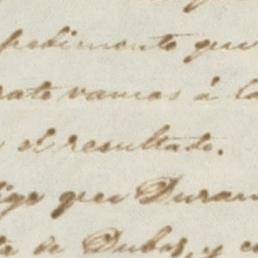 pedimento que
rate vamos á la
el resultado.
diga que Duran
de Dubos, y e